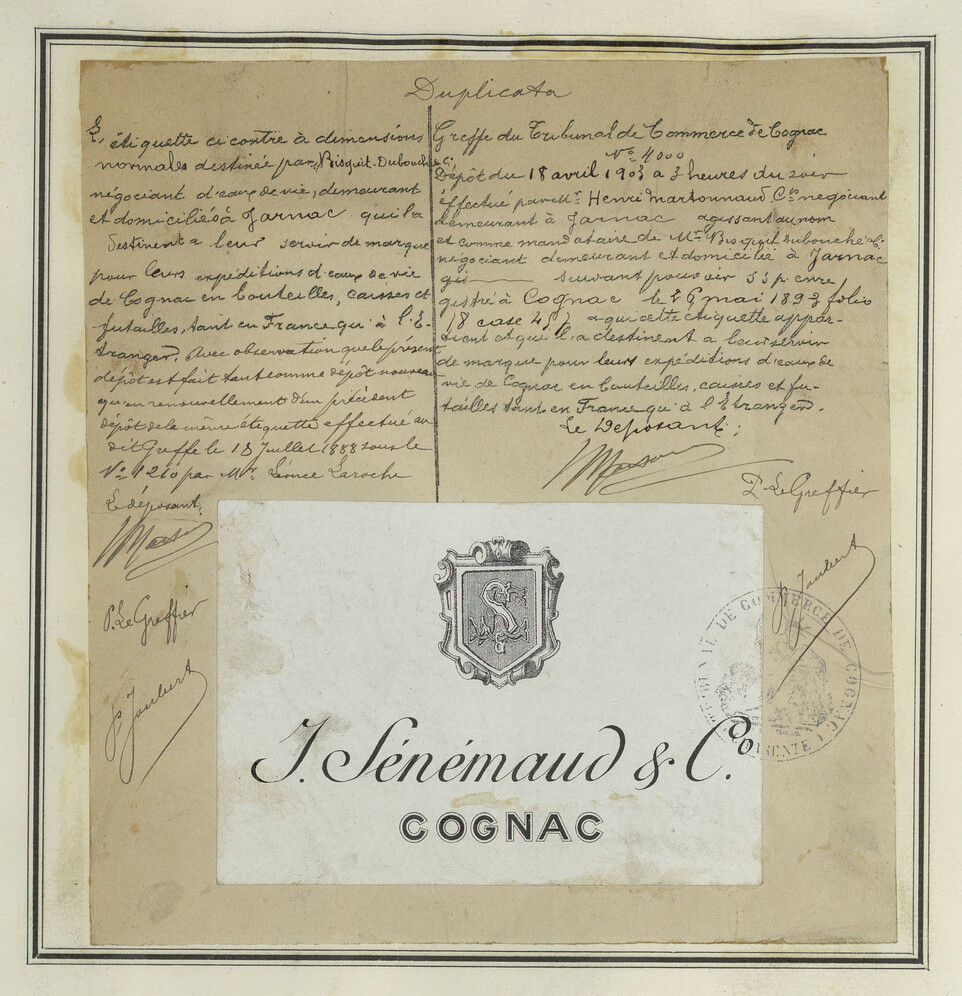 Duplicata
L'étiquette ci contre à dimensions
normales destinée par Bisquit-Dubouché & Cie
négociant d'eaux de vie, demeurant
et domiciliés à Jarnac qui la
destinent à leur servir de marque
pour leurs expéditions d'eaux de vie
de Cognac en bouteilles, caisses et
futailles, tant en France qu'à l'E-
tranger. Avec observation que le présent
dépôt est fait tant comme dépôt nouveau
qu'en renouvellement d'un précédent
dépôt de la même étiquette effectué au
dit Greffe le 18 Juillet 1888 sous le
No 1210 par Mr Léonce Laroche
Le déposant,
P. Le Greffier
P. Joubert
Greffe du Tribunal de Commerce de Cognac
No 4000
Dépôt du 18 avril 1903 à 3 heures du soir
effectué par Mr Henri Martonnaud, Cis négociant
demeurant à Jarnac agissant au nom
et comme mandataire de Mrs Bisquit Dubouché & Cie
négociant demeurant et domicilié à Jarnac
suivant pouvoir s s p. enre
gistré à Cognac le 26 mai 1893 folio
18 case 4 à qui cette étiquette appar-
tient et qui la destinent à leur servir
de marque pour leurs expéditions d'eaux de
vie de Cognac en bouteilles, caisses et fu-
tailles tant en France qu'à l'Etranger.
Le Déposant;
P. Le Greffier
P. Joubert
TRIBUNAL DE COMMERCE DE COGNAC
J. Sénémaud & Co.
COGNAC